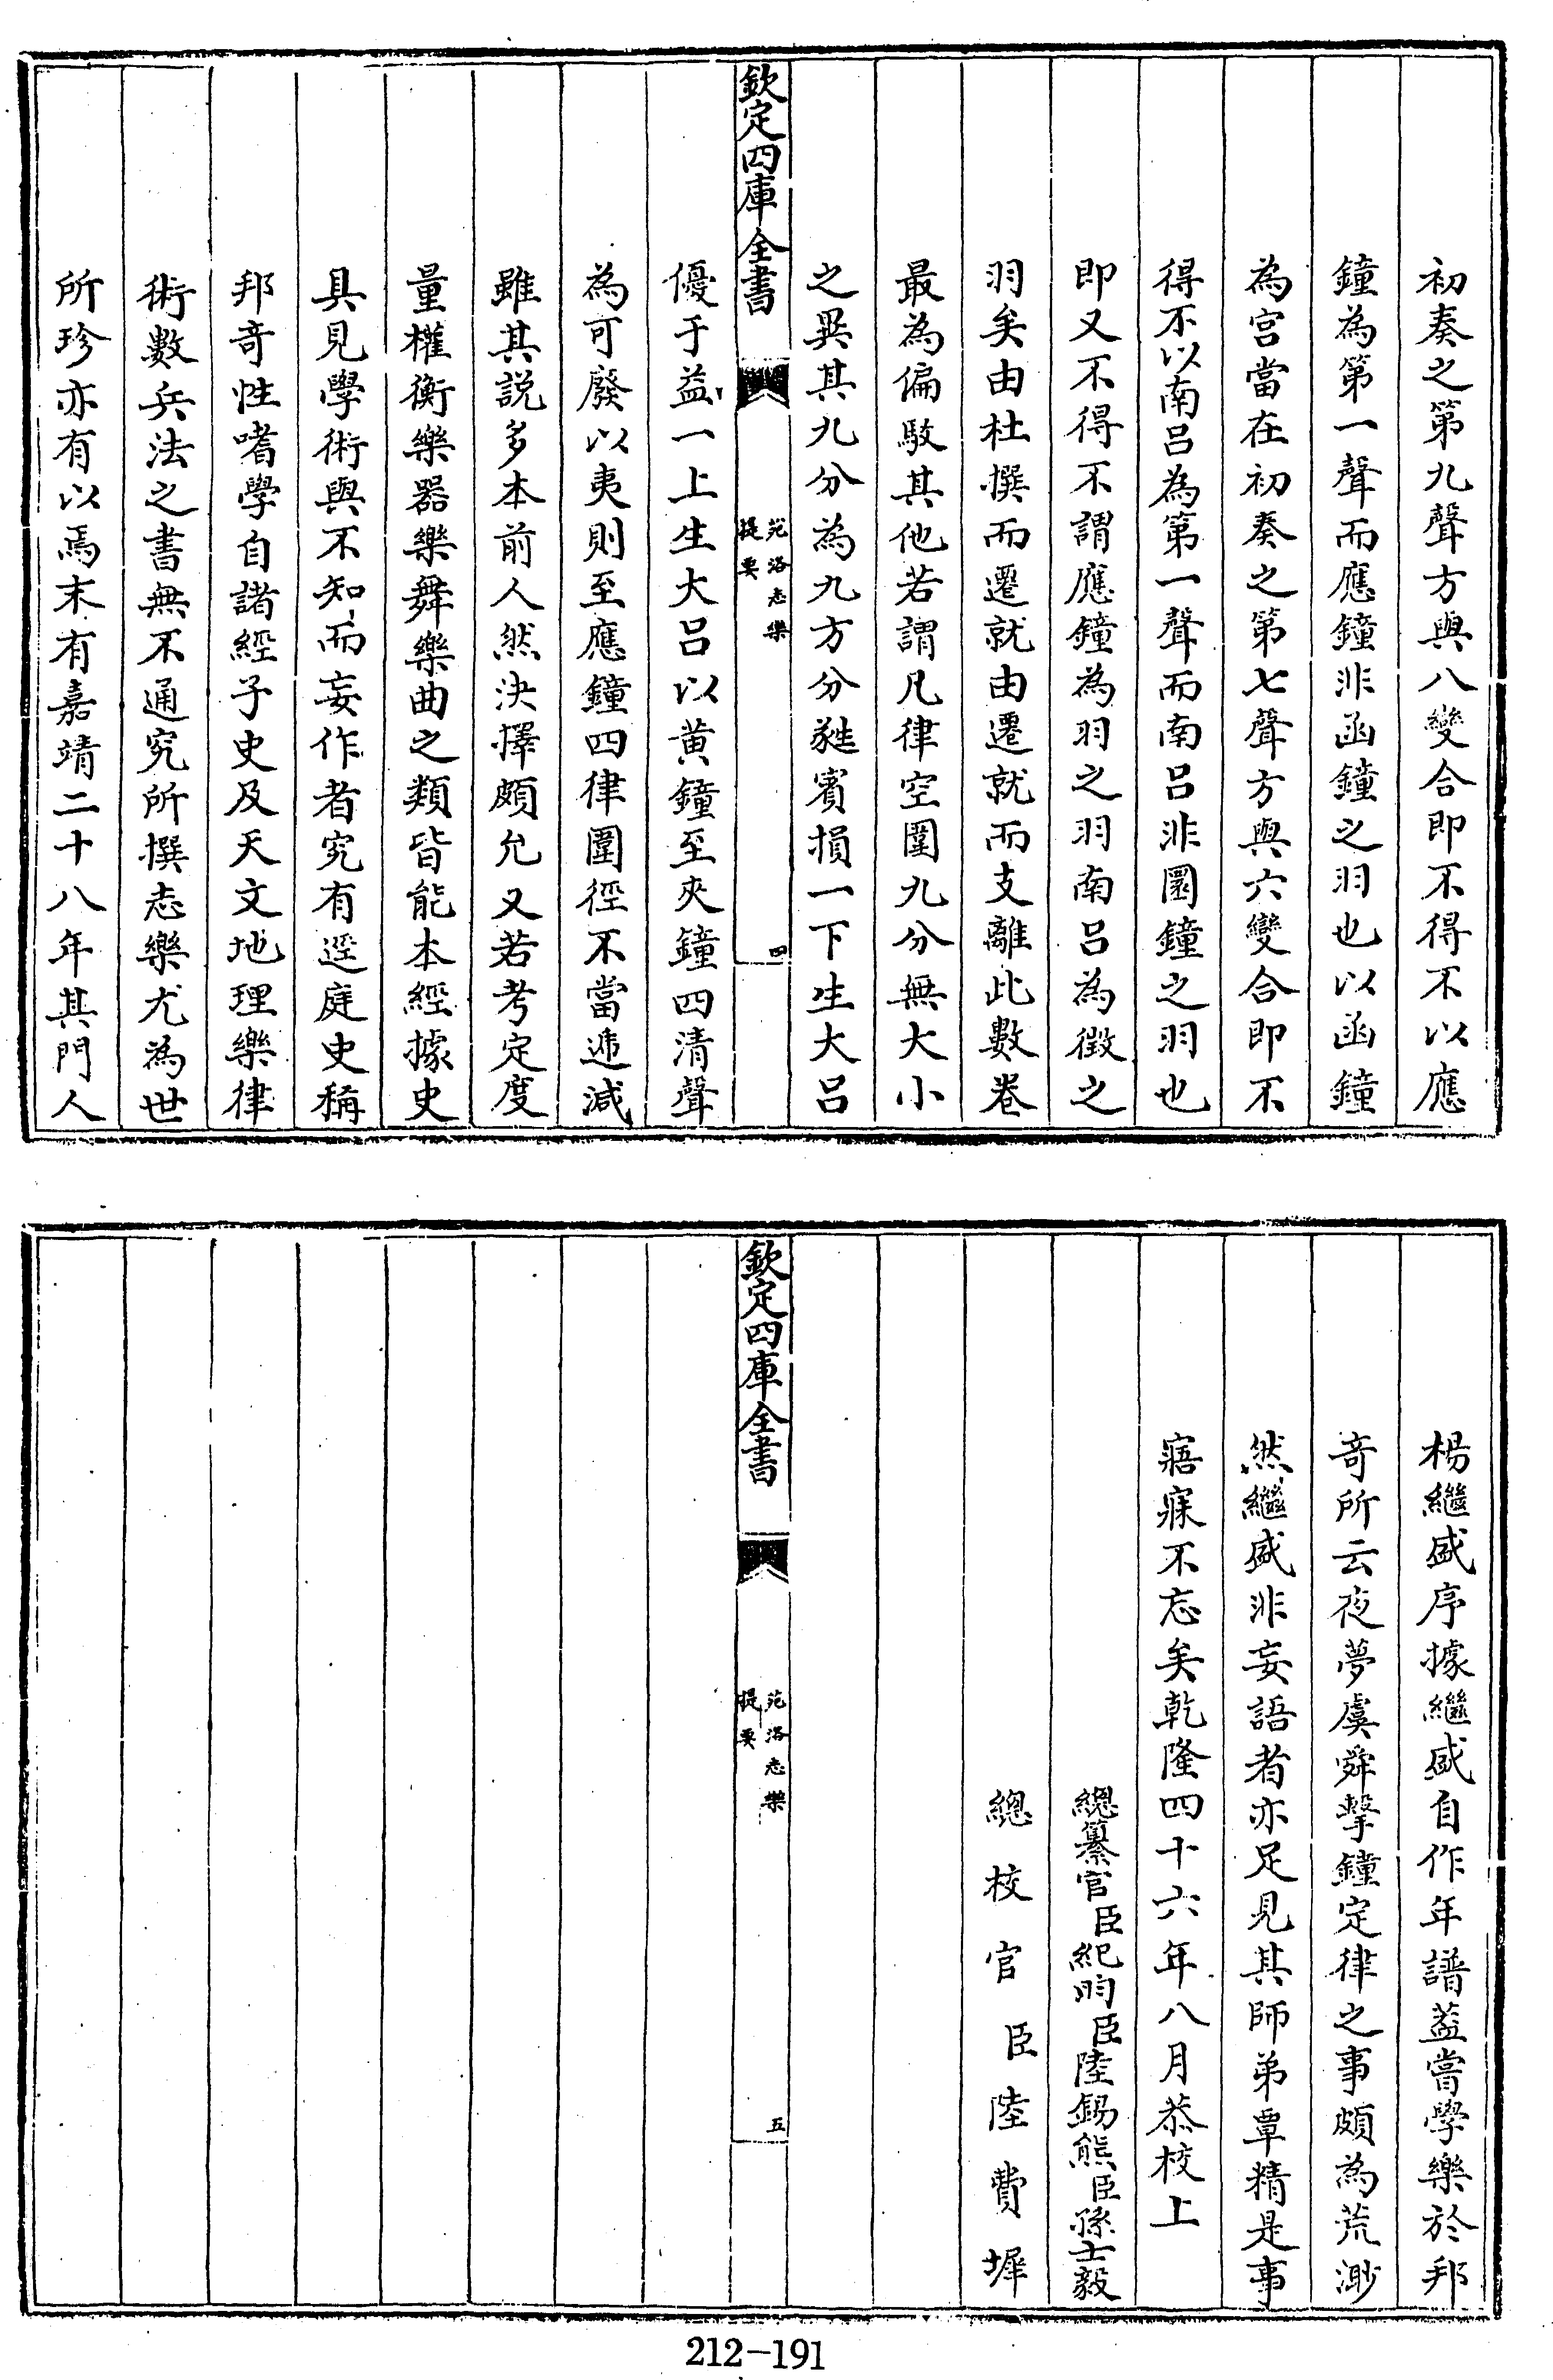 初奏之第九聲方與八變合即不得不以應
鐘為第一聲而應鐘非函鐘之羽也以函鐘
為宫當在初奏之第七聲方與六變合即不
得不以南吕為第一聲而南吕非圜鐘之羽也
即又不得不謂應鐘為羽之羽南吕為徵之
羽矣由杜撰而遷就由遷就而支離此數卷
最為偏駮其他若謂凡律空圍九分無大小
之異其九分為九方分蕤賓損一下生大吕
欽定四庫全書
苑洛志樂
提要
四
優于益一上生大吕以黄鐘至夾鐘四清聲
為可廢以夷則至應鐘四律圍徑不當遞減
雖其説多本前人然決擇頗允又若考定度
量權衡樂器樂舞樂曲之類皆能本經據史
具見學術與不知而妄作者究有逕庭史稱
邦奇性嗜學自諸經子史及天文地理樂律
術數兵法之書無不通究所撰志樂尤為世
所珍亦有以焉末有嘉靖二十八年其門人
楊繼盛序據繼盛自作年譜蓋嘗學樂於邦
奇所云夜夢虞舜擊鐘定律之事頗為荒渺
然繼盛非妄語者亦足見其師弟覃精是事
寤寐不忘矣乾隆四十六年八月恭校上
總纂官臣紀昀臣陸錫熊臣孫士毅
總校官臣陸費墀
欽定四庫全書
苑洛志樂
提要
五
212-191